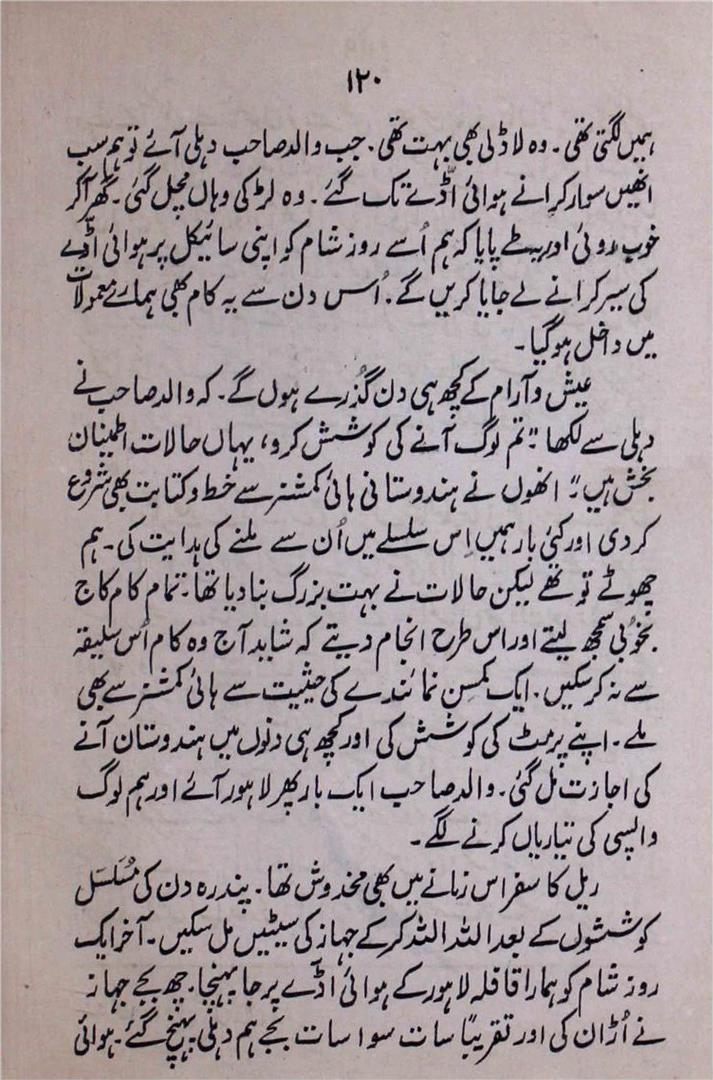 ۱۲۰
ہمیں لگتی تھی۔ وہ لاڈلی بھی بہت تھی۔ جب والد صاحب دہلی آئے تو ہم سب
انھیں سوار کرانے ہوائی اڈّے تک گئے۔ وہ لڑکی وہاں مچل گئی۔ گھر آکر
خوب روئی اور یہ طے پایا کہ ہم اُسے روز شام کو اپنی سائیکل پر ہوائی اڈّے
کی سیر کرانے لے جایا کریں گے۔ اُس دن سے یہ کام بھی ہمارے معمولات
میں داخل ہوگیا۔
عیش و آرام کے کچھ ہی دن گذُرے ہوں گے۔ کہ والد صاحب نے
دہلی سے لکھا "تم لوگ آنے کی کوشش کرو، یہاں حالات اطمینان
بخش ہیں" انھوں نے ہندوستانی ہائی کمشنر سے خط و کتابت بھی شروع
کردی اور کئی بار ہمیں اِس سلسلے میں اُن سے ملنے کی ہدایت کی۔ ہم
چھوٹے تو تھے لیکن حالات نے بہت بزرگ بنا دیا تھا۔ تمام کام کاج
بخوبی سمجھ لیتے اور اس طرح انجام دیتے کہ شاید آج وہ کام اُس سلیقہ
سے نہ کرسکیں۔ ایک کمسِن نمائندے کی حیثیت سے ہائی کمشنر سے بھی
ملے۔ اپنے پرمٹ کی کوشش کی اور کچھ ہی دنوں میں ہندوستان آنے
کی اجازت مل گئی۔ والد صاحب ایک بار پھر لاہور آئے اور ہم لوگ
واپسی کی تیاریاں کرنے لگے۔
ریل کا سفر اس زمانے میں بھی مخدوش تھا۔ پندرہ دن کی مُسَلسَل
کوششوں کے بعد اللہ اللہ کرکے جہاز کی سیٹیں مل سکیں۔ آخر ایک
روز شام کو ہمارا قافلہ لاہور کے ہوائی اڈّے پر جا پہنچا۔ چھ بجے جہاز
نے اُڑان کی اور تقریباً سات سوا سات بجے ہم دہلی پہنچ گئے۔ ہوائی